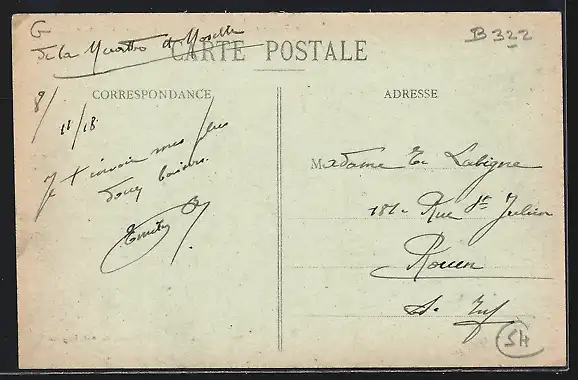 G
B 322
de la Meurthe et Moselle
CARTE POSTALE
CORRESPONDANCE
8/
11/18
Je t'envoie mes plus
doux baisers.
ADRESSE
Madame E. Labigne
181. Rue St Julien
Rouen
S. Inf
SH